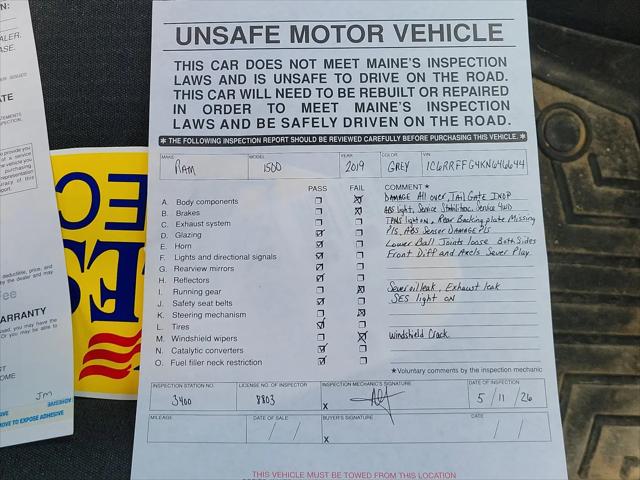 UNSAFE MOTOR VEHICLE
THIS CAR DOES NOT MEET MAINE'S INSPECTION
LAWS AND IS UNSAFE TO DRIVE ON THE ROAD.
THIS CAR WILL NEED TO BE REBUILT OR REPAIRED
IN ORDER TO MEET MAINE'S INSPECTION
LAWS AND BE SAFELY DRIVEN ON THE ROAD.
* THE FOLLOWING INSPECTION REPORT SHOULD BE REVIEWED CAREFULLY BEFORE PURCHASING THIS VEHICLE. *
MAKE MODEL YEAR COLOR VIN
RAM 1500 2019 GREY 1C6RRFFG4KN646644
PASS FAIL COMMENT *
A. Body components DAMAGE All over, TailGate INOP
B. Brakes ABS light, Service Stabilitrac, Service 4WD
C. Exhaust system TPMS light on, Rear Backing plate Missing
D. Glazing P/S, ABS Senser DAMAGE P/S
E. Horn Lower Ball Joints loose Both Sides
F. Lights and directional signals Front Diff and Axels Sever Play
G. Rearview mirrors
H. Reflectors
I. Running gear Sever oil leak, Exhaust leak
J. Safety seat belts SES light on
K. Steering mechanism
L. Tires
M. Windshield wipers Windshield Crack
N. Catalytic converters
O. Fuel filler neck restriction
*Voluntary comments by the inspection mechanic
INSPECTION STATION NO. LICENSE NO. OF INSPECTOR INSPECTION MECHANIC'S SIGNATURE DATE OF INSPECTION
3400 8803 X 5 / 11 / 26
MILEAGE DATE OF SALE BUYER'S SIGNATURE DATE
/ / X / /
THIS VEHICLE MUST BE TOWED FROM THIS LOCATION
N:
ALER.
ASE.
ATE
provide you
of a service
vehicle you
purchasing
representation
deductible, price, and
by the dealer and may
fee
you may have the
WARRANTY
OME
JM
MOVE TO EXPOSE ADHESIVE